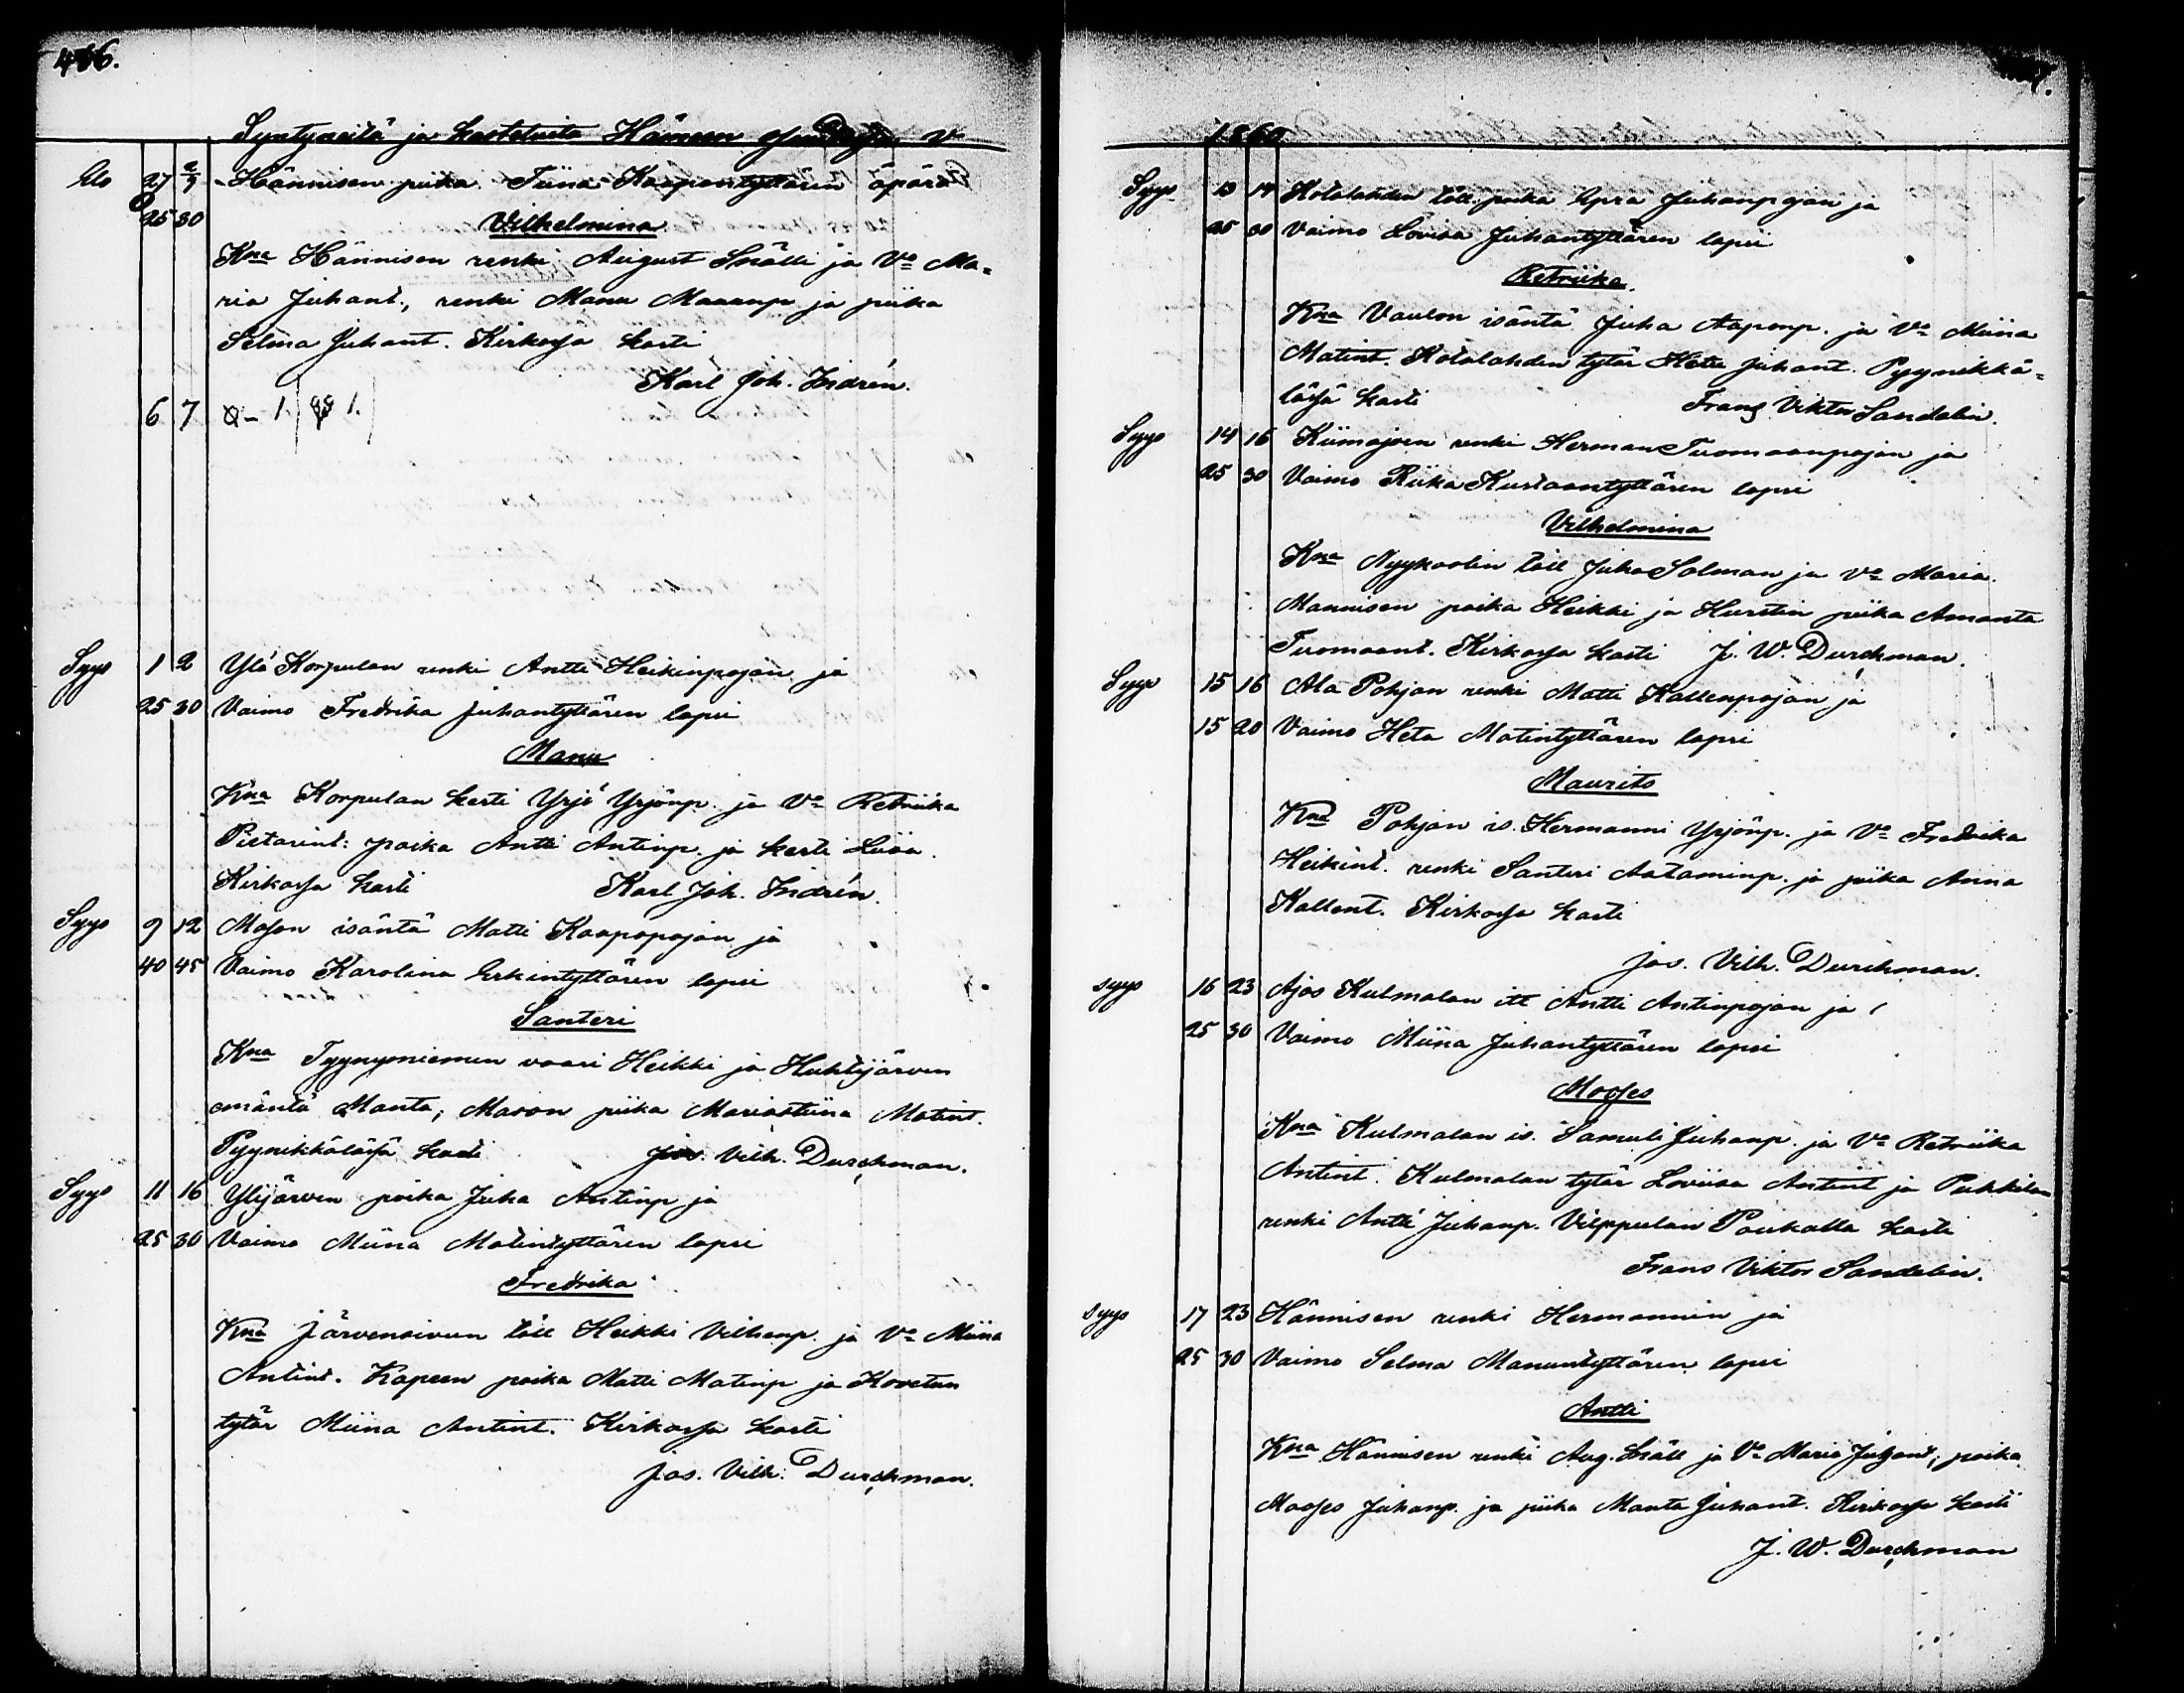 466.
Syntyneitä ja kastetuita Hämeen V.
Elo 27 2/9 Hännisen piika Tiina Kaapontyttären äpärä
25 30 Vilhelmina
Kna Hännisen renki August Snälli ja Vo Ma=
ria Juhant., renki Manu Maaanp ja piika
Selma Juhant. Kirkossa kasti
Karl Joh. Indrén.
6 7 1. 1.
Syys 1 2 Ylä Korpulan renki Antti Heikinpojan ja
25 30 Vaimo Fredrika Juhantyttären lapsi
Manu
Kna Korpulan kesti Yrjö Yrjönp. ja Vo Retriika
Pietarint: poika Antti Antinp. ja kesti Liisa.
Kirkossa kasti Karl Joh. Indrén.
Syys 9 12 Mason isäntä Matti Kaapopojan ja
40 45 Vaimo Karolina Erkintyttären lapsi
Santeri
Kna Tyynyniemen vaari Heikki ja Huhtijärven
emäntä Manta, Mason piika Mariastiina Matint.
Pyynikkälässä kasti Jos. Vilh. Durchman.
Syys 11 16 Ylijärven poika Juha Antinp ja
25 30 Vaimo Miina Matintyttären lapsi
Fredrika
Kna Järvensivun töll Heikki Vilhenp. ja Vo Miina
Antint. Kapeen poika Matti Matinp ja Kovetun
tytär Miina Antint. Kirkossa kasti
Jos. Vilh. Durchman.
1860
Syys 13 14 Kotalahden töll. poika Epra Juhanpojan ja
25 30 Vaimo Lovisa Juhantyttären lapsi
Retriika.
Kna Vaulon isäntä Juha Aaponp. ja Vo Miina
Matint. Kotalahden tytär Heta Juhant. Pyynikkä=
lässä kasti Frans Viktor Sandelin.
Syys 14 16 Kiimajoen renki Herman Tuomaanpojan ja
25 30 Vaimo Riika Kustaantyttären lapsi
Vilhelmina
Kna Nyykoolin töll Juha Salman ja Vo Maria.
Mannisen poika Heikki ja Hurstin piika Amanta
Tuomaant. Kirkossa kasti J. W. Durchman.
Syys 15 16 Ala Pohjan renki Matti Kallenpojan ja
15 20 Vaimo Heta Matintyttären lapsi
Maurits
Kna Pohjan is. Hermanni Yrjönp. ja Vo Fredrika
Heikint. renki Santeri Aataminp. ja piika Anna
Kallent. Kirkossa kasti
Jos. Vilh. Durchman.
syys 16 23 Ajos Kulmalan itt Antti Antinpojan ja
25 30 Vaimo Miina Juhantyttären lapsi
Mooses
Kna Kulmalan is. Samuli Juhanp. ja Vo Retriika
Antint. Kulmalan tytär Loviisa Antint ja Pukkilan
renki Antti Juhanp. Vilppulan Poukalla kasti
Frans Viktor Sandelin.
syys 17 23 Hännisen renki Hermannin ja
25 30 Vaimo Selma Manuntyttären lapsi
Antti
Kna Hännisen renki Aug. Snäll ja Vo Maria Juhant, poika
Mooses Juhanp. ja piika Manta Juhant. Kirkossa kasti
J. W. Durchman